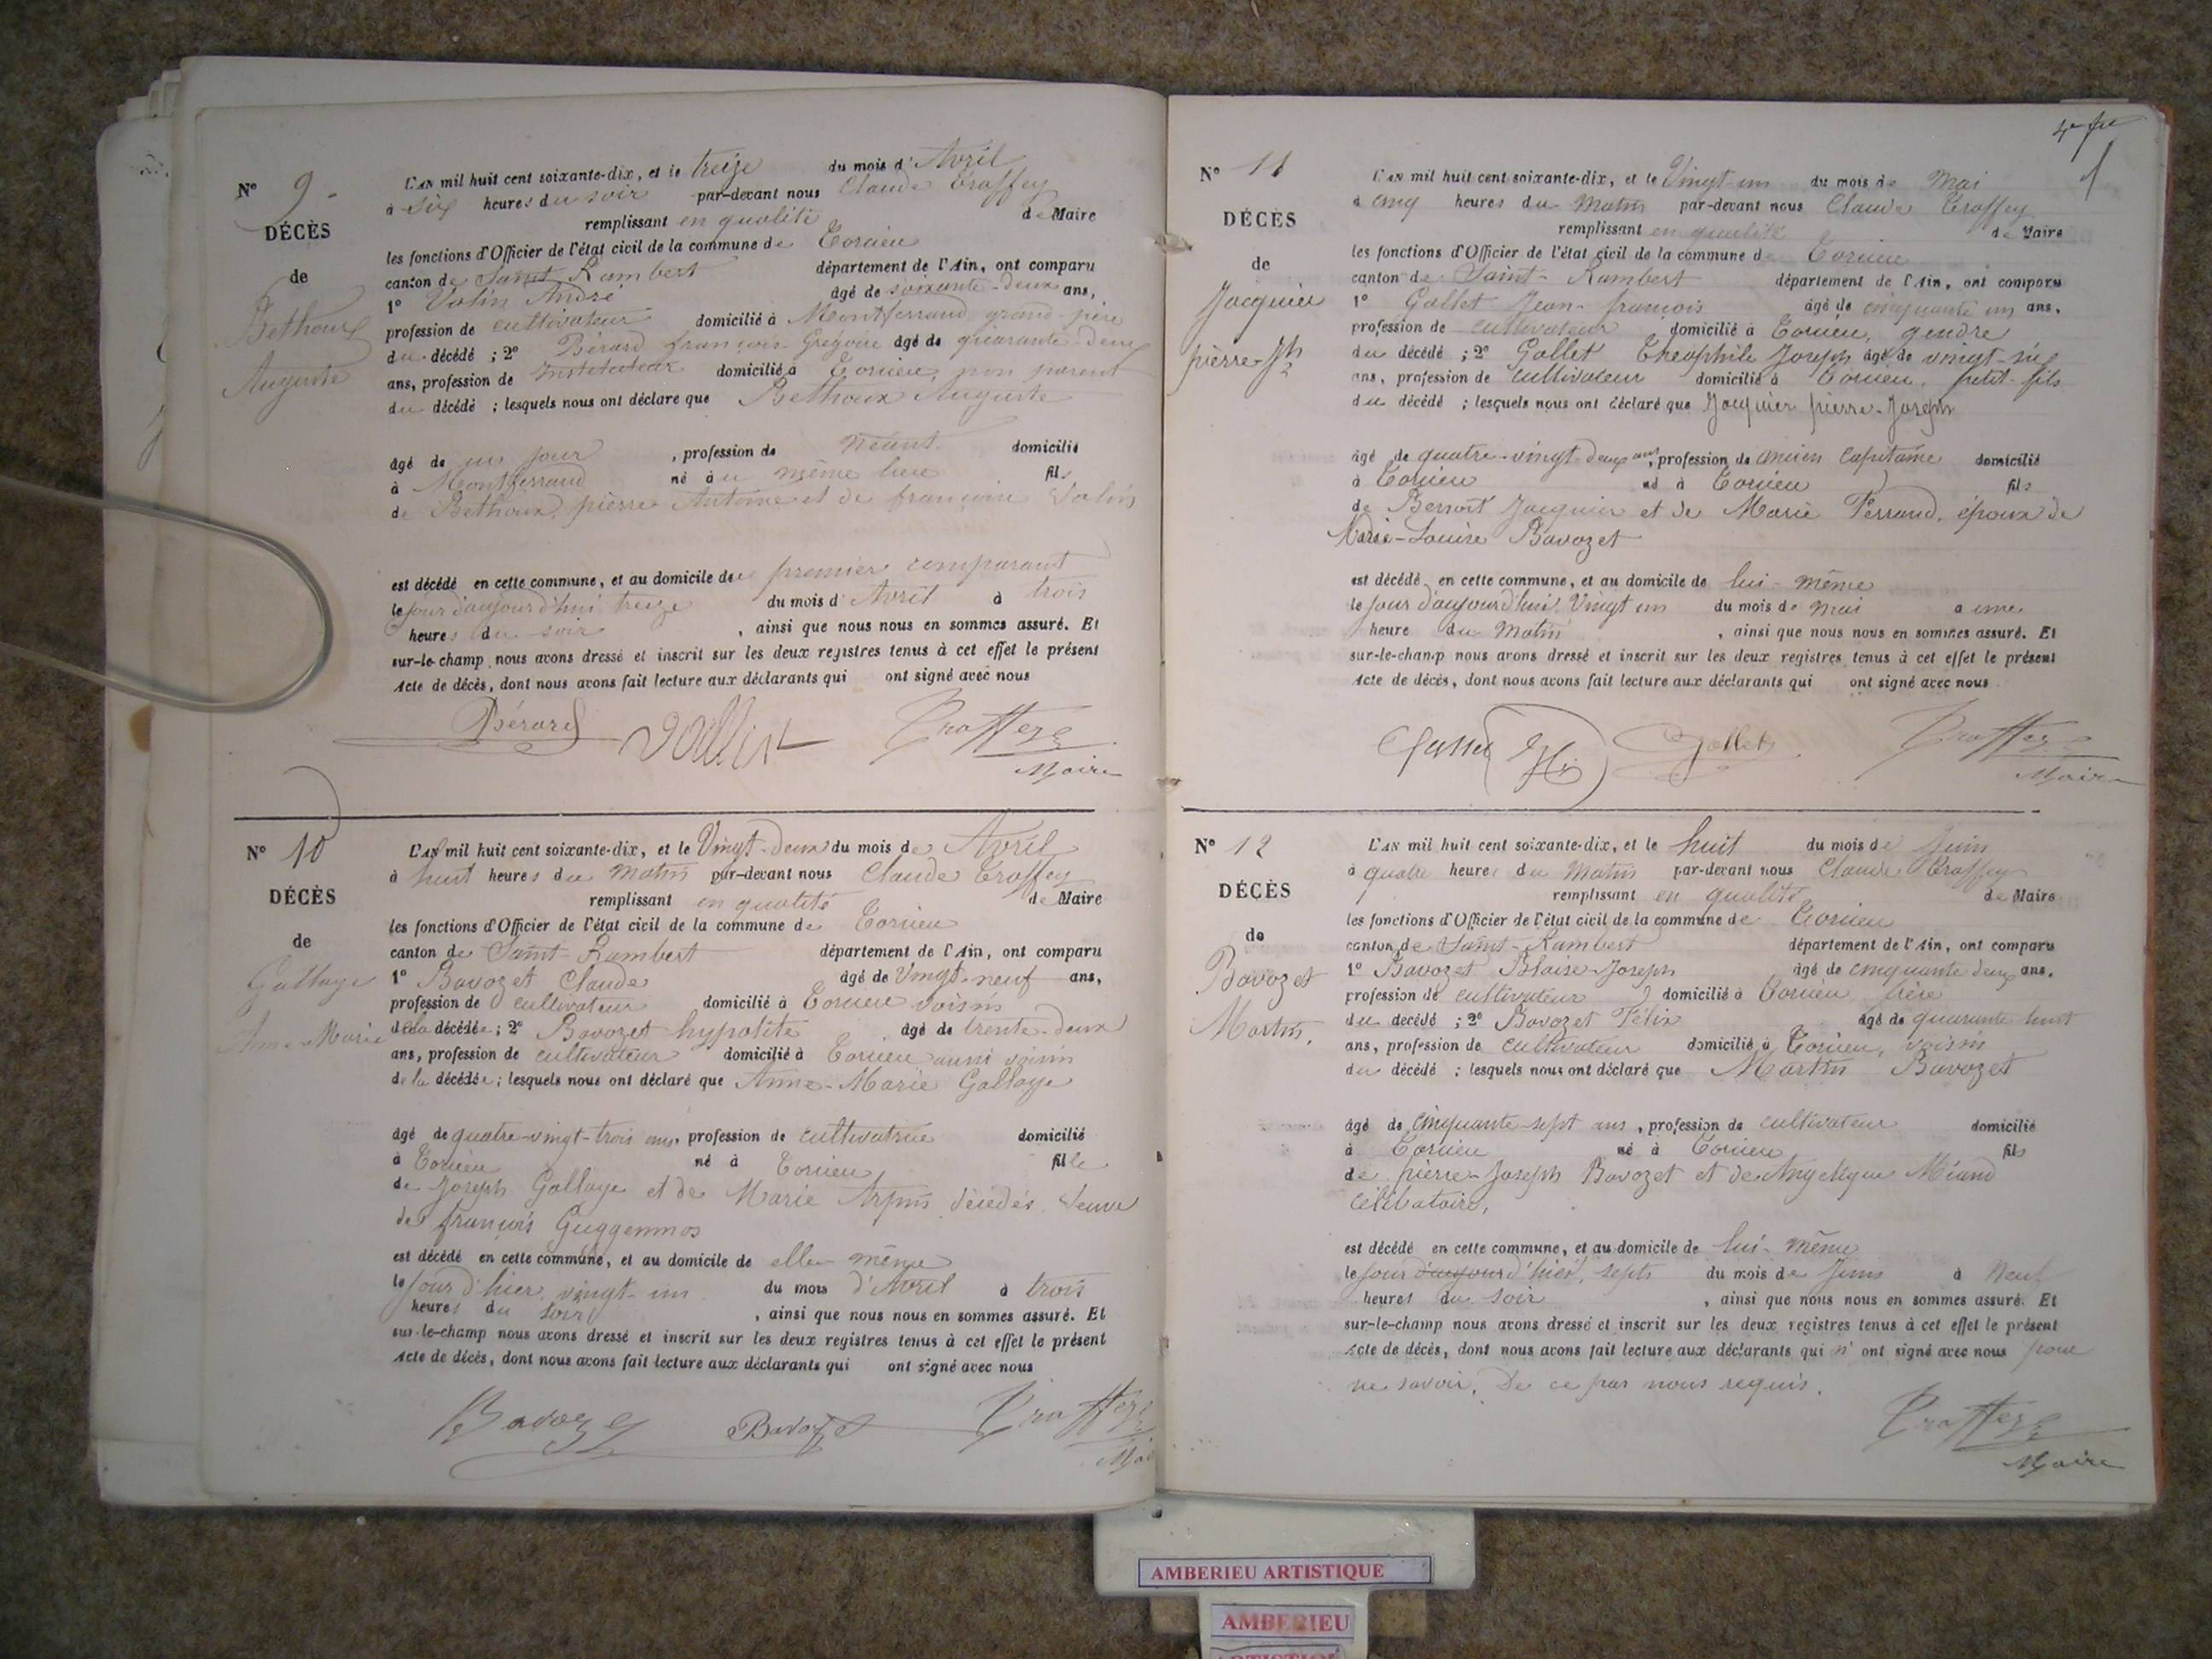 N° 9
DÉCÈS
de
Bethoux
Auguste
L'AN mil huit cent soixante-dix, et le treize du mois d'Avril
à six heures du soir par-devant nous Claude Traffey
remplissant en qualité de Maire
les fonctions d'Officier de l'état civil de la commune de Torcieu
canton de Saint-Rambert département de l'Ain, ont comparu
1° Valin André âgé de soixante-deux ans,
profession de cultivateur domicilié à Montferrand grand-père
du décédé ; 2° Bérard françois-Grégoire âgé de quarante-deux
ans, profession de Instituteur domicilié à Torcieu, non parent
du décédé ; lesquels nous ont déclaré que Bethoux Auguste
âgé de un jour , profession de Néant domicilié
à Montferrand né au même lieu fils
de Bethoux, pierre Antoine et de françoise Valin
est décédé en cette commune, et au domicile du premier comparant
le jour d'aujourd'hui treize du mois d'Avril à trois
heures du soir , ainsi que nous nous en sommes assuré. Et
sur-le-champ nous avons dressé et inscrit sur les deux registres tenus à cet effet le présent
Acte de décès, dont nous avons fait lecture aux déclarants qui ont signé avec nous
Bérard Traffey
Maire
N° 10
DÉCÈS
de
Gallaye
Anne-Marie
L'AN mil huit cent soixante-dix, et le Vingt-deux du mois de Avril
à huit heures du Matin par-devant nous Claude Traffey
remplissant en qualité de Maire
les fonctions d'Officier de l'état civil de la commune de Torcieu
canton de Saint-Rambert département de l'Ain, ont comparu
1° Bavozet Claude âgé de Vingt-neuf ans,
profession de cultivateur domicilié à Torcieu voisin
de la décédée ; 2° Bavozet hypolite âgé de trente-deux
ans, profession de cultivateur domicilié à Torcieu aussi voisin
de la décédée ; lesquels nous ont déclaré que Anne-Marie Gallaye
âgé de quatre-vingt-trois ans, profession de cultivatrice domicilié
à Torcieu né à Torcieu fille
de Joseph Gallaye et de Marie Arpin décédés, Veuve
de françois Guggenmos
est décédé en cette commune, et au domicile de elle-même
le jour d'hier, vingt-un du mois d'Avril à trois
heures du soir , ainsi que nous nous en sommes assuré. Et
sur-le-champ nous avons dressé et inscrit sur les deux registres tenus à cet effet le présent
Acte de décès, dont nous avons fait lecture aux déclarants qui ont signé avec nous
Bavozet Bavozet Traffey
4e fle
N° 11
DÉCÈS
de
Jacquier
pierre-Jh
L'AN mil huit cent soixante-dix, et le Vingt-un du mois de Mai
à cinq heures du Matin par-devant nous Claude Traffey
remplissant en qualité de Maire
les fonctions d'Officier de l'état civil de la commune de Torcieu
canton de Saint-Rambert département de l'Ain, ont comparu
1° Gallet Jean-françois âgé de cinquante un ans,
profession de cultivateur domicilié à Torcieu, gendre
du décédé ; 2° Gallet Théophile Joseph âgé de vingt-six
ans, profession de cultivateur domicilié à Torcieu, petit-fils
du décédé ; lesquels nous ont déclaré que Jacquier pierre-Joseph
âgé de quatre-vingt deux ans, profession de ancien Capitaine domicilié
à Torcieu né à Torcieu fils
de Benoît Jacquier et de Marie Ferrand, époux de
Marie-Louise Bavozet
est décédé en cette commune, et au domicile de lui-même
le jour d'aujourd'hui Vingt un du mois de Mai à une
heure du Matin , ainsi que nous nous en sommes assuré. Et
sur-le-champ nous avons dressé et inscrit sur les deux registres tenus à cet effet le présent
Acte de décès, dont nous avons fait lecture aux déclarants qui ont signé avec nous
Gallet Traffey
Maire
N° 12
DÉCÈS
de
Bavozet
Martin,
L'AN mil huit cent soixante-dix, et le huit du mois de Juin
à quatre heures du Matin par-devant nous Claude Traffey
remplissant en qualité de Maire
les fonctions d'Officier de l'état civil de la commune de Torcieu
canton de Saint-Rambert département de l'Ain, ont comparu
1° Bavozet Blaise-Joseph âgé de cinquante deux ans,
profession de cultivateur domicilié à Torcieu, frère
du décédé ; 2° Bavozet Félix âgé de quarante huit
ans, profession de cultivateur domicilié à Torcieu, voisin
du décédé ; lesquels nous ont déclaré que Martin Bavozet
âgé de cinquante-sept ans, profession de cultivateur domicilié
à Torcieu né à Torcieu fils
de pierre-Joseph Bavozet et de Angélique Miand
Célibataire,
est décédé en cette commune, et au domicile de lui-même
le jour d'aujourd'hier, sept du mois de Juin à Neuf
heures du soir , ainsi que nous nous en sommes assuré. Et
sur-le-champ nous avons dressé et inscrit sur les deux registres tenus à cet effet le présent
Acte de décès, dont nous avons fait lecture aux déclarants qui n'ont signé avec nous pour
ne savoir, De ce par nous requis.
Traffey
Maire
AMBERIEU ARTISTIQUE
AMBERIEU
ARTISTIQUE